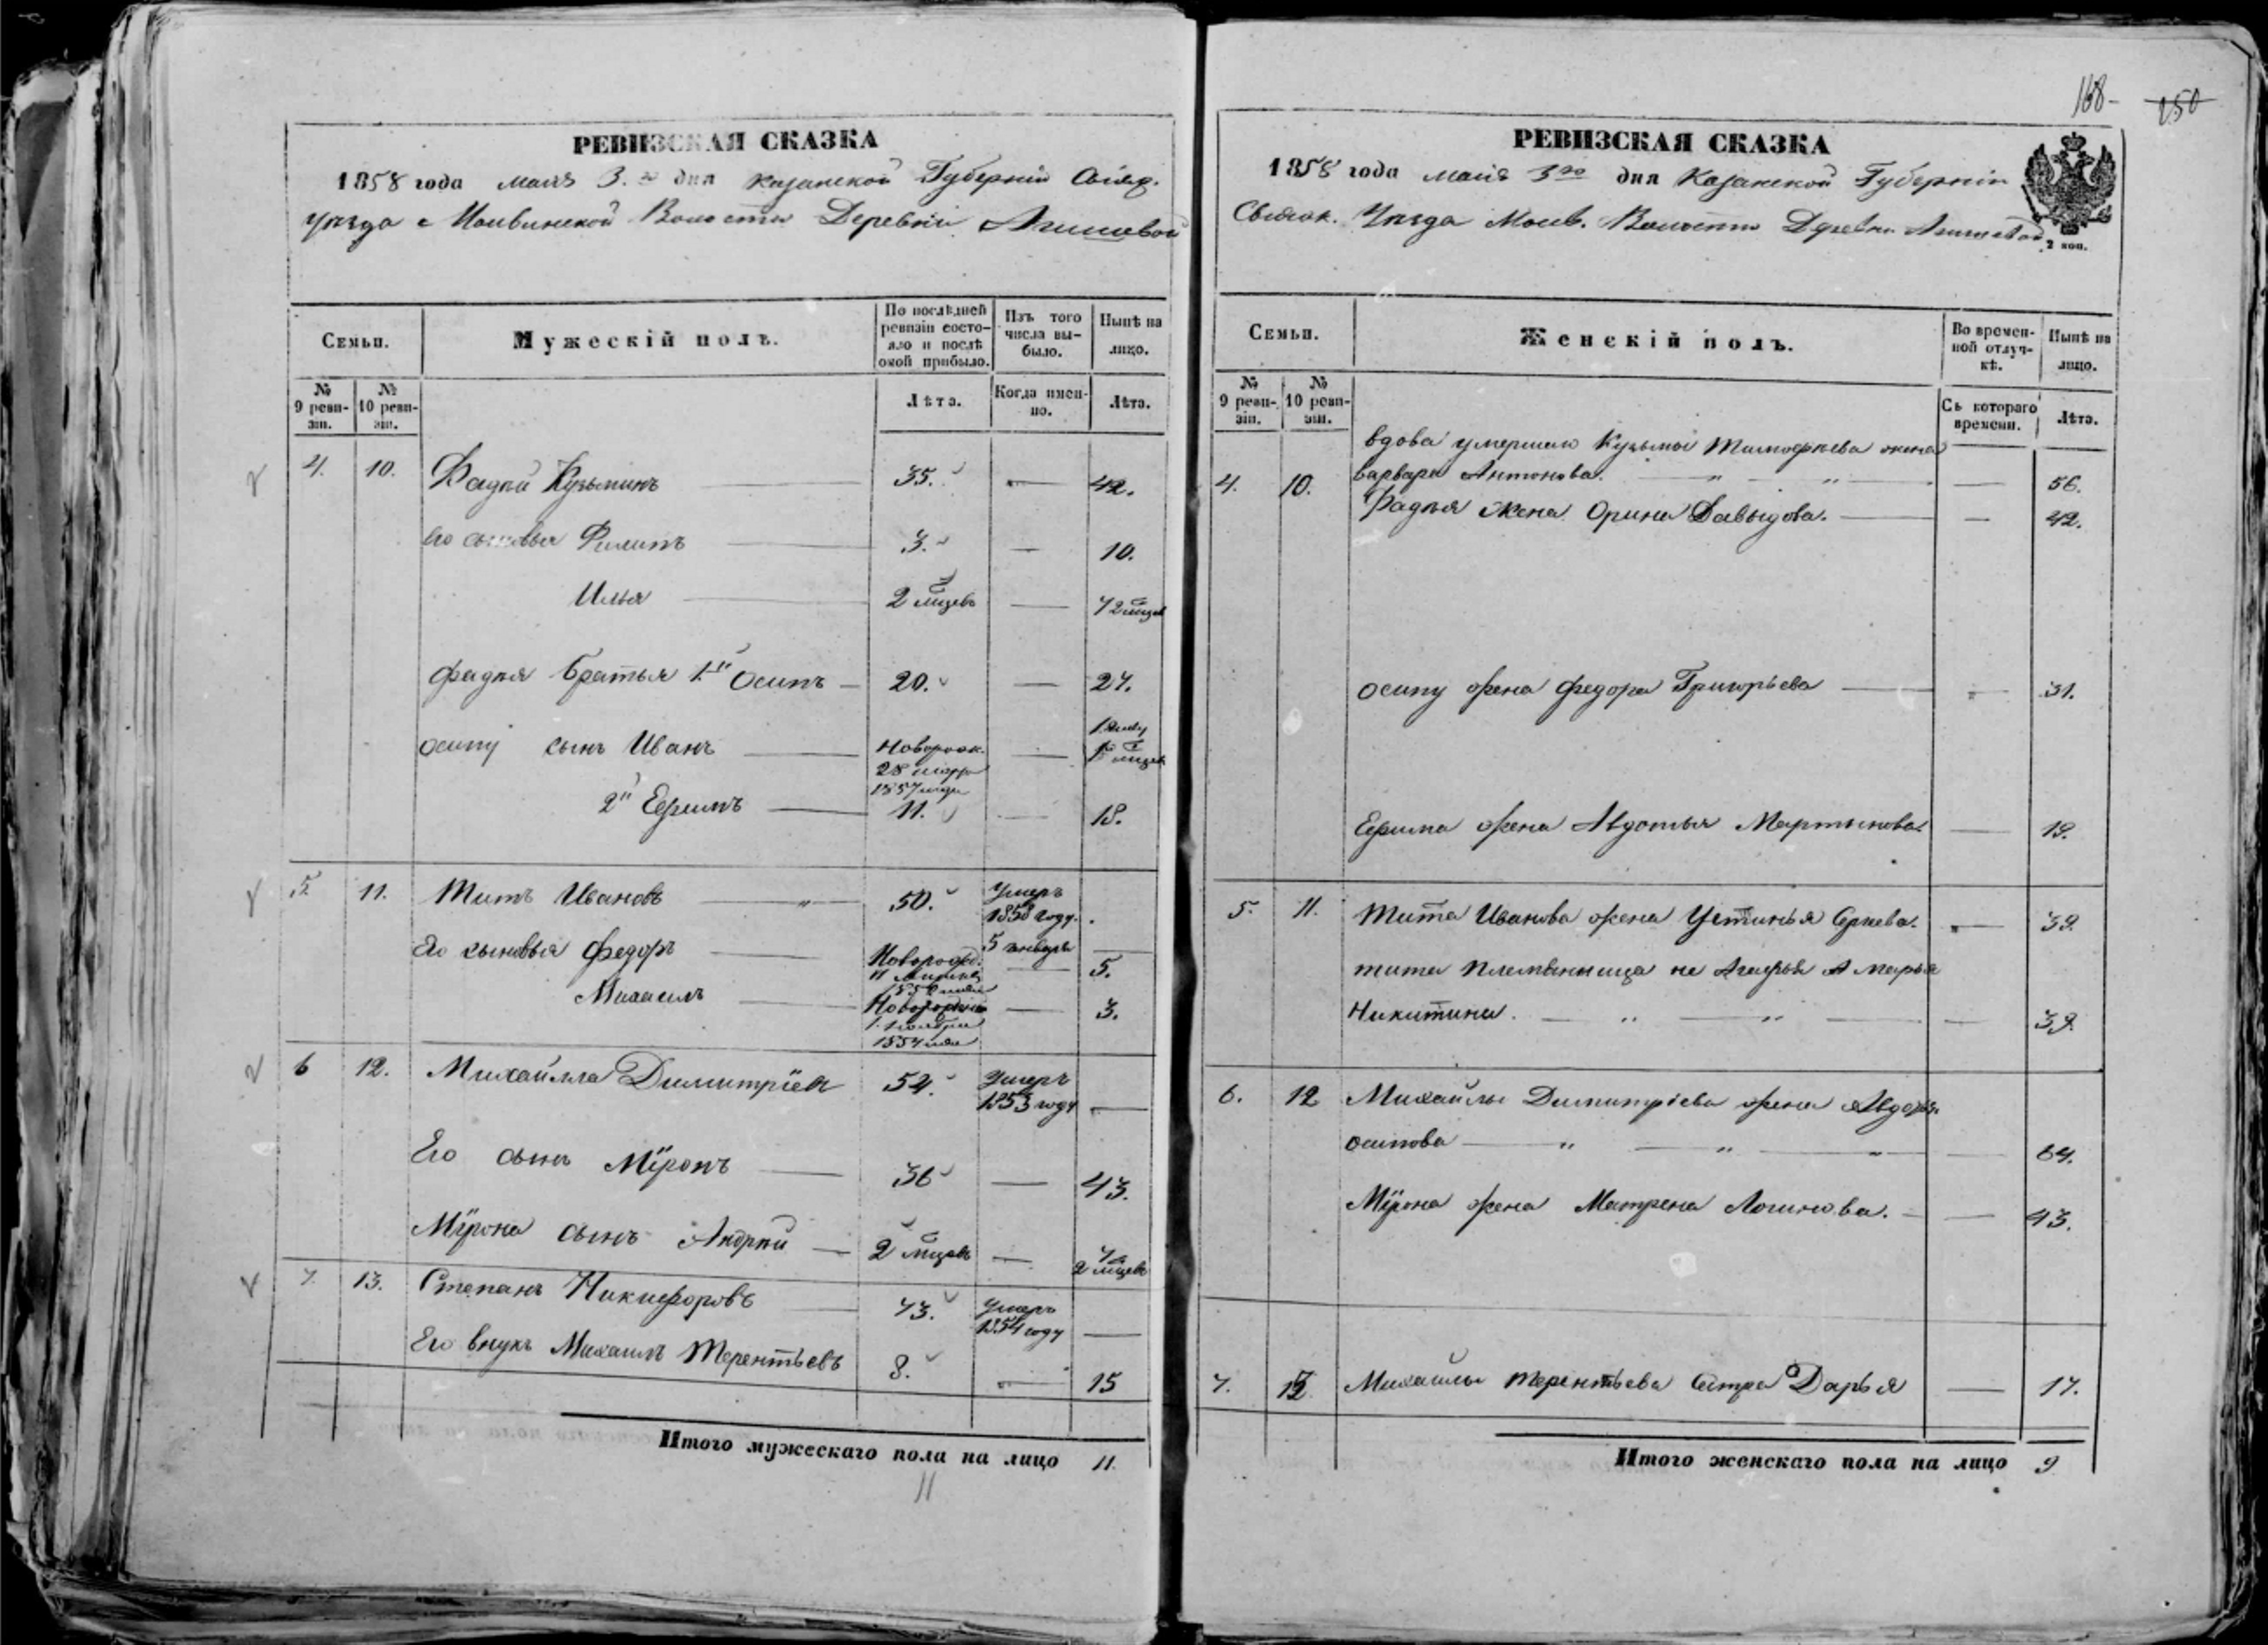 РЕВИЗСКАЯ СКАЗКА
1858 года Маія 3.го дня Казанской Губерніи Свіяж.
Уѣзда Волости Деревни Агишевой
Семьи.
Мужескій полъ.
По послѣдней ревизіи состояло и послѣ оной прибыло.
Изъ того числа выбыло.
Нынѣ на лицо.
№ 9 ревизіи.
№ 10 ревизіи.
Лѣта.
Когда именно.
Лѣта.
4. 10. Фадѣй Кузьминъ 35. — 42.
Его сыновья Филипъ 3. — 10.
Илья 2 мцевъ — 7 2 мцев
Фадѣя братья 1.й Осипъ 20. — 27.
Осипу сынъ Иванъ Новорож. 28 1857 — 1 мцев
2й Ефимъ 11. — 18.
5. 11. Титъ Ивановъ 50. Умеръ 1858 году 5 январь —
Его сыновья Федоръ Новорожд. — 5.
Михаилъ 1 ноября 1854 — 3.
6 12. Михайла Димитріев 54. Умеръ 1853 году —
Его сынъ Міронъ 36 — 43.
Мірона сынъ Андрѣй 2 мцевъ — 7 2 мцевъ
7. 13. Степанъ Никифоровъ 73. Умеръ 1854 году —
Его внукъ Михаилъ Терентьевъ 8. — 15
Итого мужескаго пола на лицо 11.
11
168- 250
РЕВИЗСКАЯ СКАЗКА
1858 года Маія 3го дня Казанской Губерніи
Свіяж. Уѣзда Волости Деревни Агишевой
2 коп.
Семьи.
Женскій полъ.
Во временной отлучкѣ.
Нынѣ на лицо.
№ 9 ревизіи.
№ 10 ревизіи.
Съ котораго времени.
Лѣта.
вдова Кузьмы Тимофѣева жена
4. 10. Варвара Антонова. — 56.
Фадѣя жена Орина Давыдова. — 42.
Осипу жена Федора Григорьева — 31.
Ефима жена Авдотья Мартынова — 19.
5. 11. Тита Иванова жена Устинья — 39.
Тита племянница не Агафья А Марья
Никитина. — 39.
6. 12 Михайлы Димитріева жена
Осипова — 64.
Мірона жена Матрена Логинова. — 43.
7. Михаилы Терентьева сестра Дарья — 17.
Итого женскаго пола на лицо 9